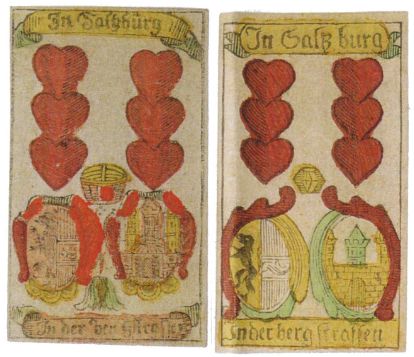 In Saltzbúrg
In der bergstrassen
In Saltz burg
In der berg strassen